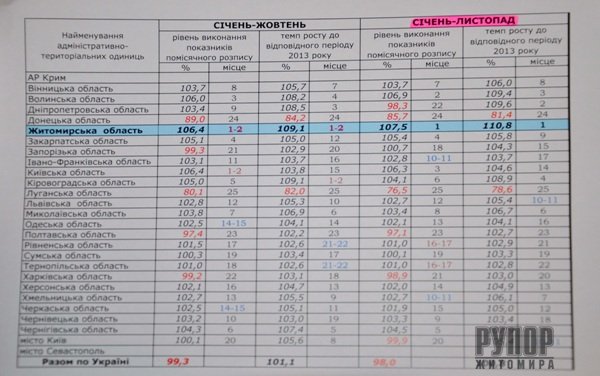 Найменування адміністративно-територіальних одиниць | СІЧЕНЬ-ЖОВТЕНЬ | СІЧЕНЬ-ЛИСТОПАД
рівень виконання показників помісячного розпису | темп росту до відповідного періоду 2013 року | рівень виконання показників помісячного розпису | темп росту до відповідного періоду 2013 року
% | місце | % | місце | % | місце | % | місце
АР Крим
Вінницька область 103,7 8 105,7 7 103,7 7 106,0 8
Волинська область 106,0 3 108,2 4 106,9 2 109,4 3
Дніпропетровська область 103,4 9 108,5 3 98,3 22 109,6 2
Донецька область 89,0 24 84,2 24 85,7 24 81,4 24
Житомирська область 106,4 1-2 109,1 1-2 107,5 1 110,8 1
Закарпатська область 105,1 4 105,0 12 105,4 4 105,8 9
Запорізька область 99,3 21 102,9 20 100,7 18 104,3 15
Івано-Франківська область 103,1 10 103,7 16 102,8 10-11 103,7 17
Київська область 106,4 1-2 103,8 15 106,3 3 104,6 14
Кіровоградська область 105,0 5 109,1 1-2 104,1 6 108,9 4
Луганська область 80,1 25 82,0 25 76,5 25 78,6 25
Львівська область 102,8 12 105,3 10 102,7 12 105,4 10-11
Миколаївська область 103,7 8 106,9 6 103,4 8 106,7 6
Одеська область 102,5 14-15 104,1 14 102,1 13 104,1 16
Полтавська область 97,4 23 102,2 23 97,1 23 102,7 23
Рівненська область 101,5 17 102,6 21-22 101,0 16-17 102,9 21
Сумська область 100,3 19 103,4 17 100,1 19 103,3 19
Тернопільська область 101,0 18 102,6 21-22 101,0 16-17 102,8 22
Харківська область 99,2 22 103,1 18 98,9 21 103,0 20
Херсонська область 102,1 16 104,7 13 102,0 14 104,9 13
Хмельницька область 102,7 13 105,5 9 102,7 10-11 106,1 7
Черкаська область 102,5 14-15 105,1 11 101,9 15 105,0 12
Чернівецька область 103,2 10 103,0 19 103,3 9
Чернігівська область 104,3 6 107,4 5 104,5 5
місто Київ 100,1 20 105,6 8 99,9 20
місто Севастополь
Разом по Україні 99,3 101,1 98,0
РУПОР
ЖИТОМИРА